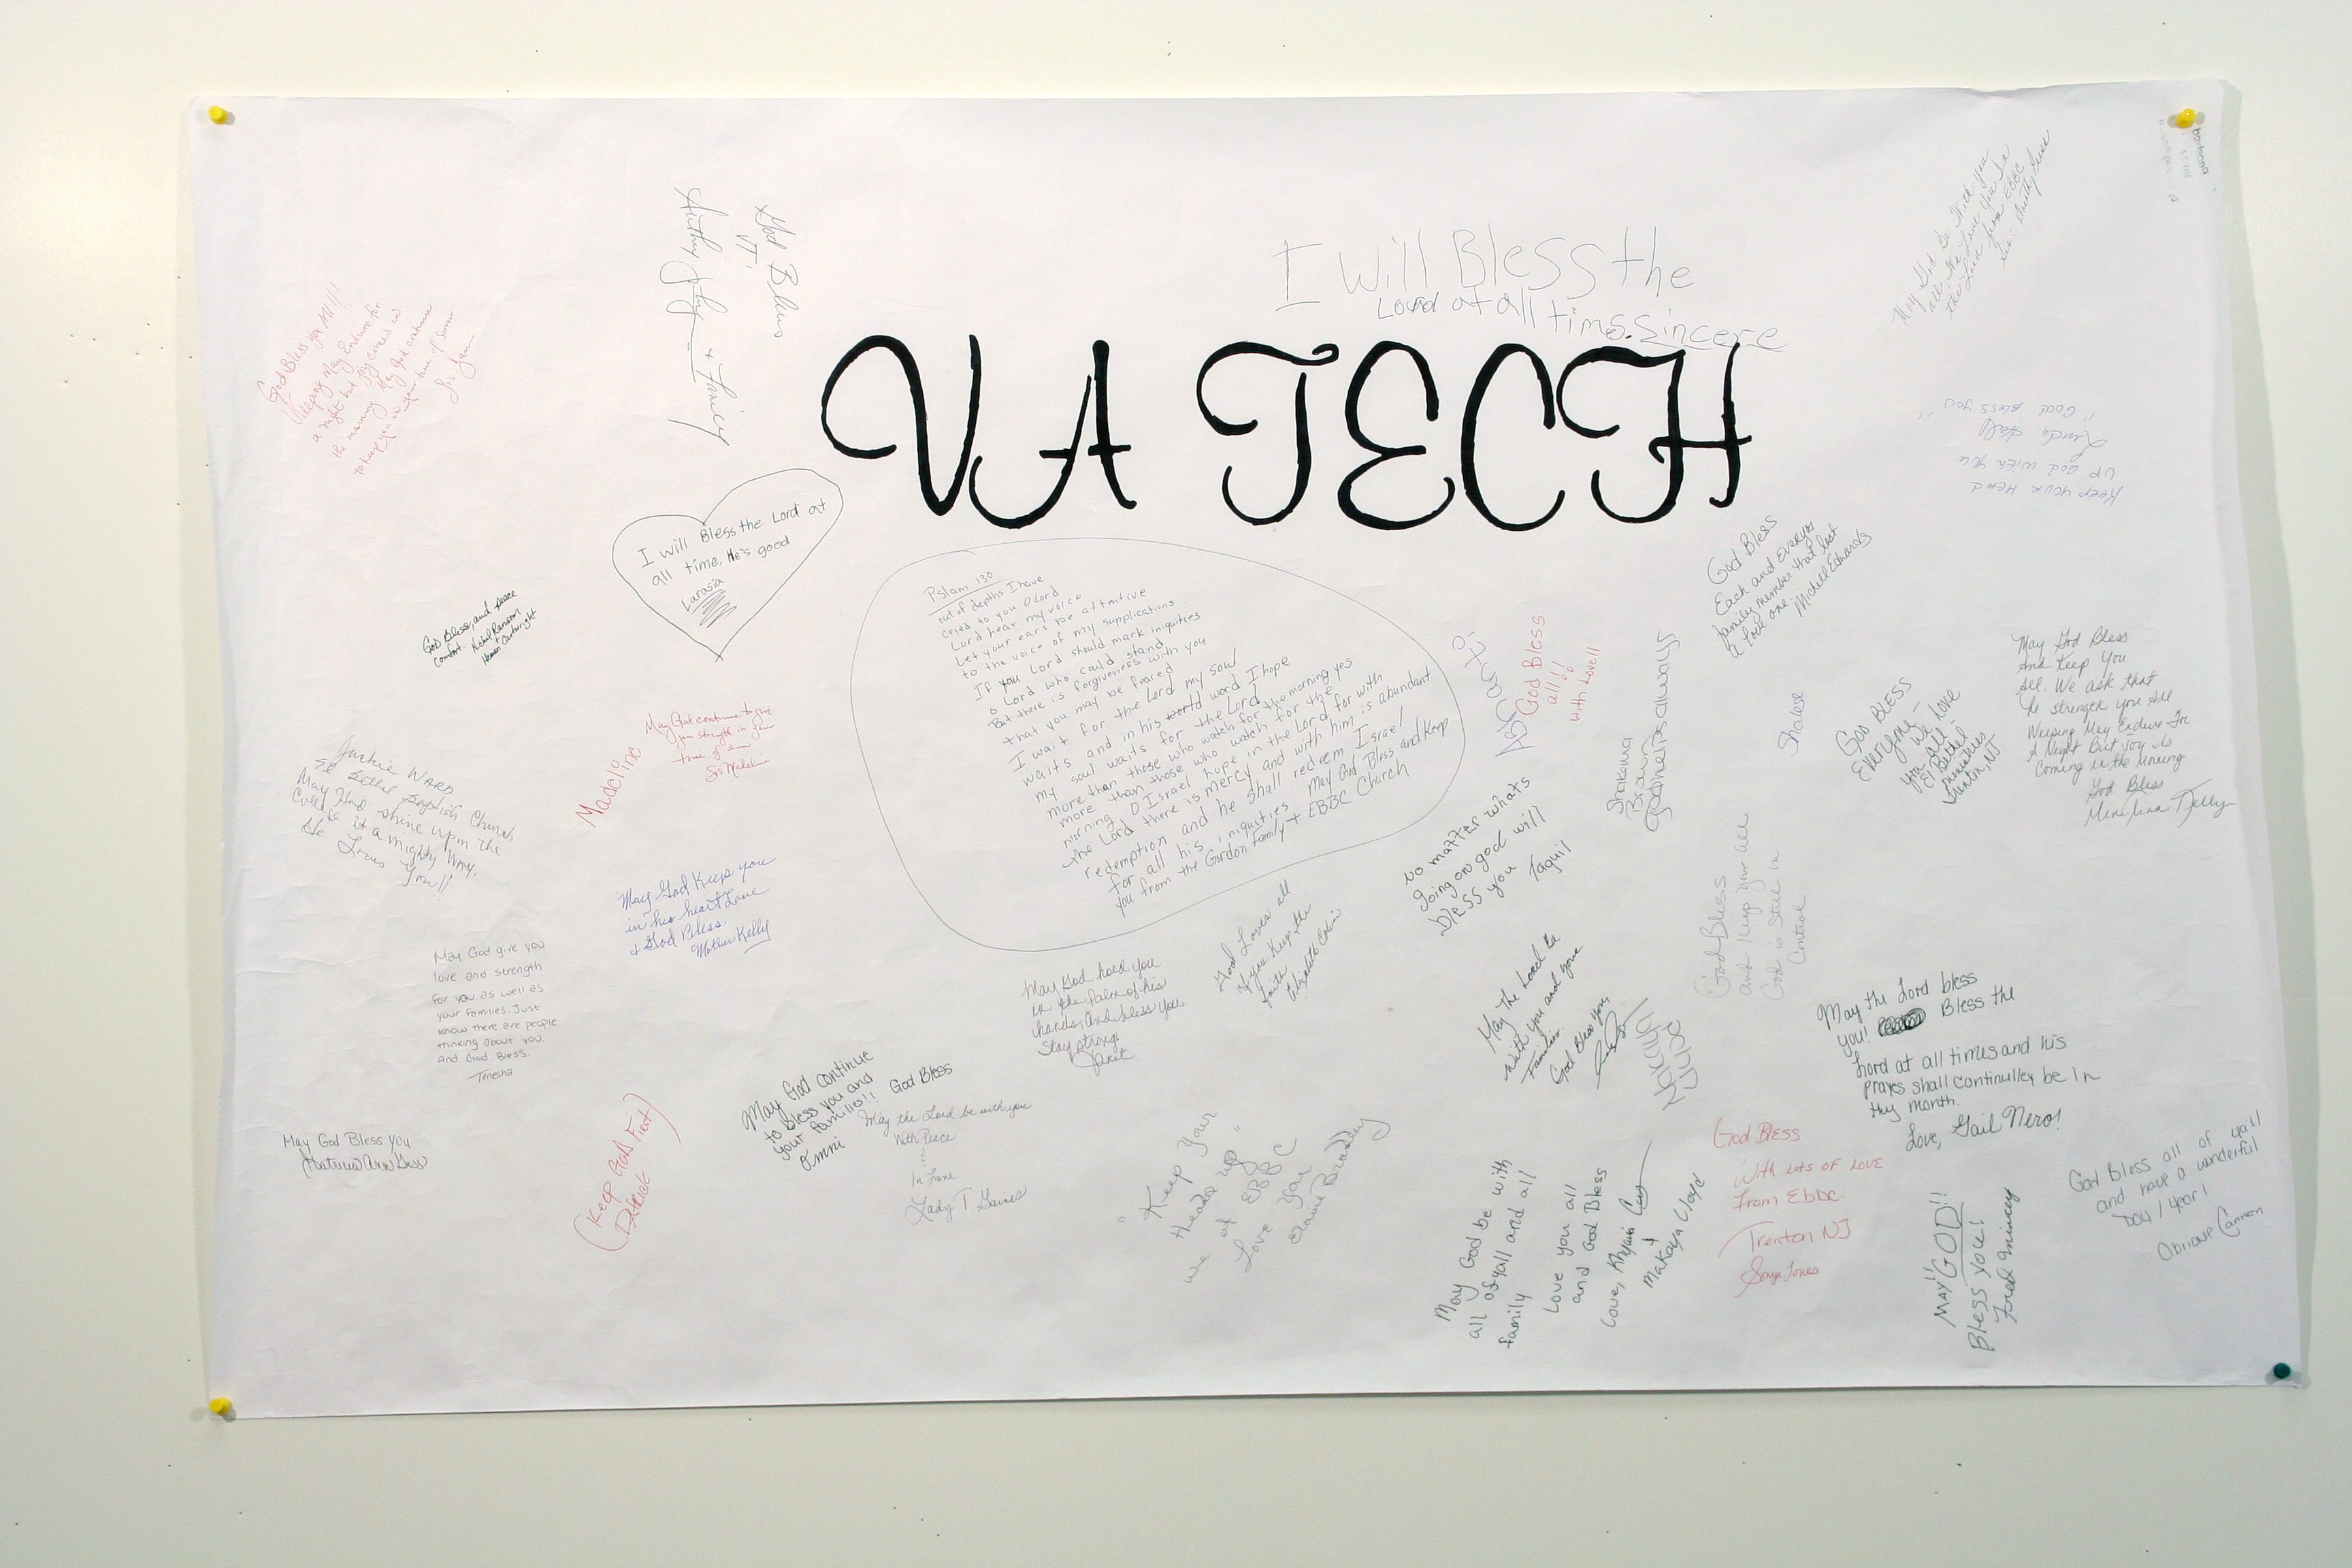 VA TECH
I will Bless the
Lord at all time. Sincere
God Bless
VT!
God Bless you All!!
Weeping May Endure for
a night but Joy comes in
the morning May God continue
to keep you in your time of
I will Bless the Lord at
all time. He's good
Larasia
God Bless, and peace
comfort.
Pslam 130
out of depths I have
cried to you O Lord
Lord hear my voice
Let your ears be attentive
to the voice of my supplications
If you Lord should mark iniquities
o Lord who could stand
But there is forgiveness with you
that you may be feared
I wait for the Lord my soul
waits and in his world word I hope
my soul waits for the Lord
more than those who watch for the morning yes
more than those who watch for the
morning O Israel hope in the Lord for with
the Lord there is mercy and with him is abundant
redemption and he shall redeem Israel
for all his iniquities May God Bless and Keep
you from the Gordon Family + EBBC Church
May God Be With you
Keep your Head
up God with you
Linda
"God Bless you"
God Bless
Each and everyos
family member that lost
a love one.
Michell Edwards
God Bless
all!!
with Lovell
Shakana
Brown
Shalese
God Bless
Everyone -
we Love
you all -
El Bethel
ministries
Trenton, NJ.
May God Bless
And Keep You
All. We ask that
he strength you all
Weeping May Endure For
A Night But Joy Is
Coming in the Morning
God Bless
Kelly
Madeline
May God continue to give
you strength in your
time of
Sis Madeline
Jackie WARD
May God shine upon the
College in a mighty Way.
He Loves You!!
May God Keep you
in his heart Love
+ God Bless.
Mother Kelly
May God give you
love and strength
for you as well as
your families. Just
know there are people
thinking about you.
And God Bless.
Tenesha
No matter whats
going on god will
bless you Taquil
God Bless
and Keep you all
God is Still in
Control
God Loves all
of you Keep the
faith
May God hold you
in the Palm of his
hands, and bless you
Stay strong.
Janet
May The Lord be
with you and your
Families.
God Bless you,
May the Lord bless
you! Bless the
Lord at all times and his
prayes shall continulley be In
thy month.
Love, Gail Nero!
May God continue
to bless you and
your families!! God Bless
Omni
May the Lord be with you
With Peace
In Love
Lady T. Gaines
May God Bless you
(Keep God First)
Derrick
"Keep Your
Heads up"
we at EBBC
Love You
Elaine Bradley
May God be with
all of yall and all
family
Love you all
and God Bless
Love,
+
Makaya Lloyd
God Bless
With Lots of Love
From Ebbc.
Trenton NJ
Sonya Jones
MAY GOD!!
Bless you!
Fred Mincey
God Bless all of yall
and have a wonderful
Day / year!
Cannon